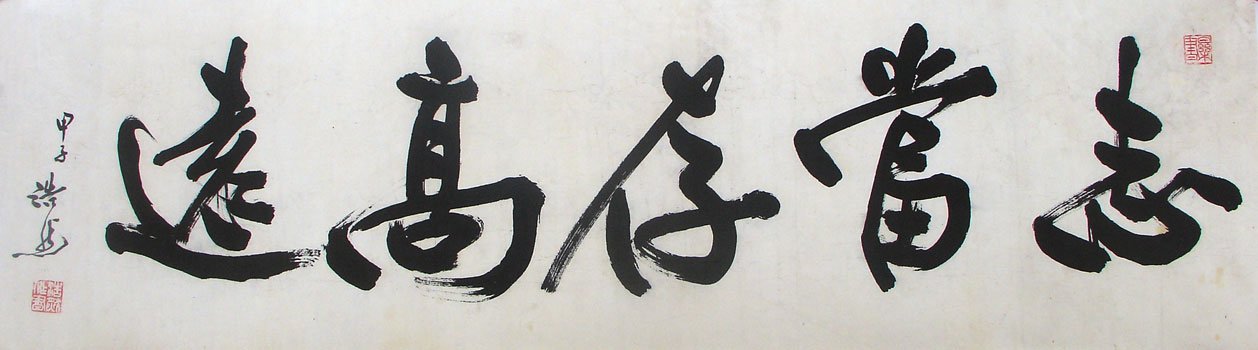 志當存高遠
甲子